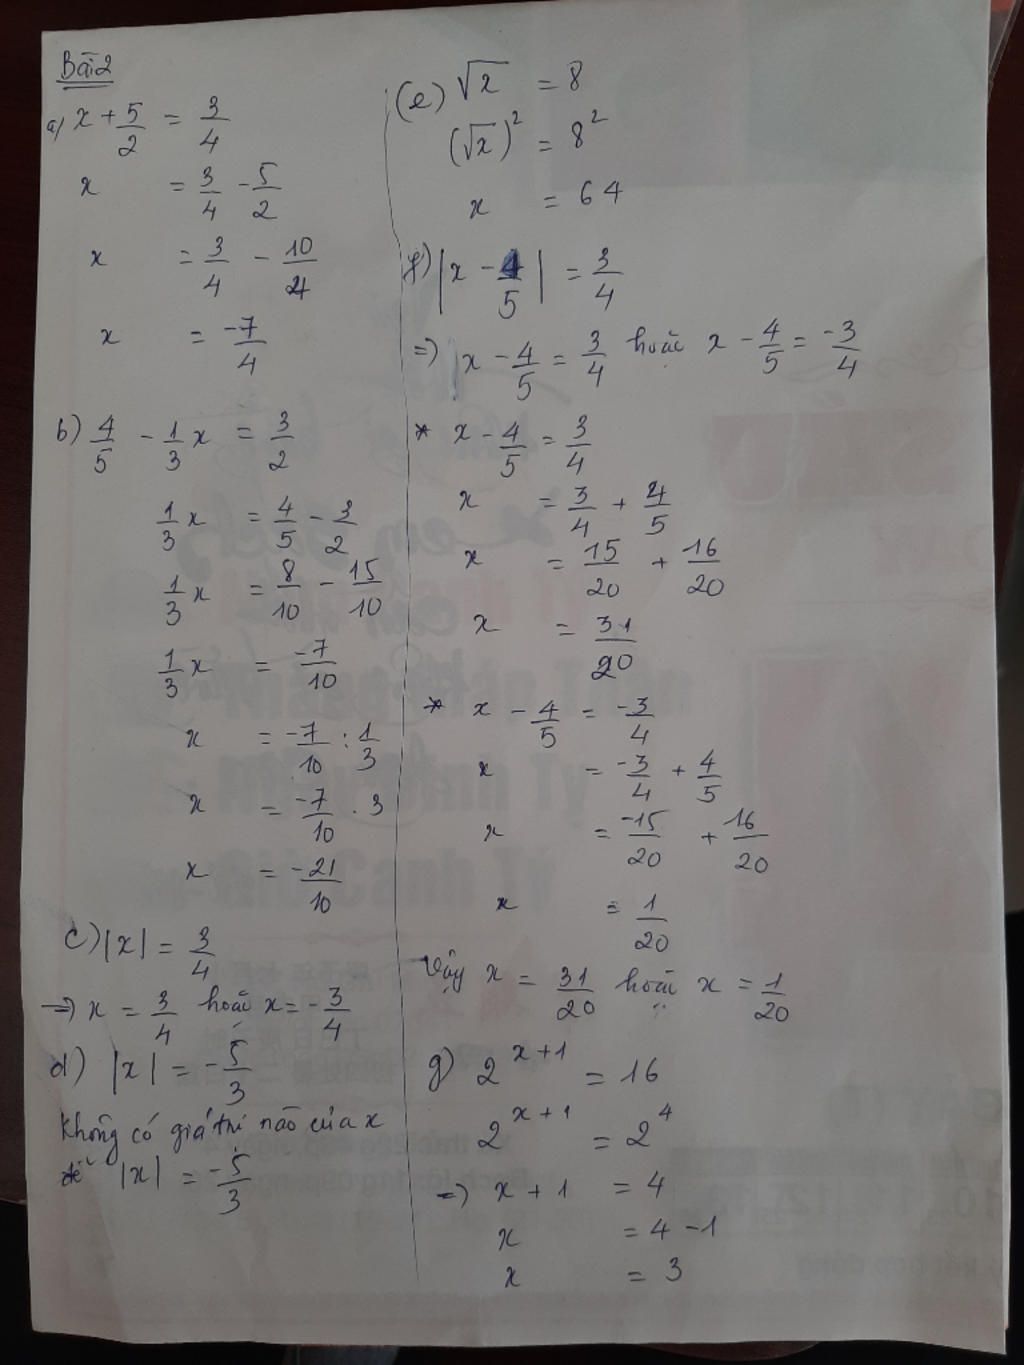 Bài 2
a) x + 5/2 = 3/4
x = 3/4 - 5/2
x = 3/4 - 10/4
x = -7/4
b) 4/5 - 1/3 x = 3/2
1/3 x = 4/5 - 3/2
1/3 x = 8/10 - 15/10
1/3 x = -7/10
x = -7/10 : 1/3
x = -7/10 . 3
x = -21/10
c) |x| = 3/4
=> x = 3/4 hoặc x = -3/4
d) |x| = -5/3
không có giá trị nào của x
để |x| = -5/3
(e) √x = 8
(√x)² = 8²
x = 64
f) |x - 4/5| = 3/4
=> x - 4/5 = 3/4 hoặc x - 4/5 = -3/4
* x - 4/5 = 3/4
x = 3/4 + 4/5
x = 15/20 + 16/20
x = 31/20
* x - 4/5 = -3/4
x = -3/4 + 4/5
x = -15/20 + 16/20
x = 1/20
Vậy x = 31/20 hoặc x = 1/20
g) 2^(x+1) = 16
2^(x+1) = 2^4
=> x + 1 = 4
x = 4 - 1
x = 3